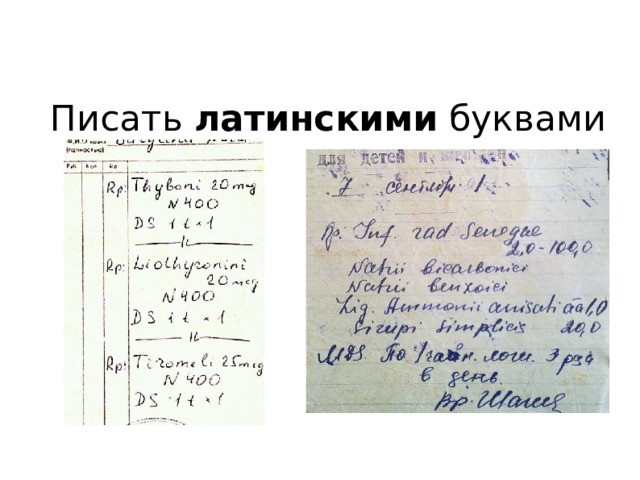 Писать латинскими буквами
Ф.И.О. врача
(полностью)
Руб. Коп. Rp.
Rp: Thyboni 20 mcg
N 400
DS 1 t × 1
Rp: Liothyronini
20 mcg
N 400
DS 1 t × 1
Rp: Tiromeli 25 mcg
N 400
DS 1 t × 1
для детей и
7 сентябр.
Rp. Inf. rad. Senegae
2,0-100,0
Natrii bicarbonici
Natrii benzoici
Liq. Ammonii anisati āā 1,0
Sirupi simplicis 20,0
MDS. По 1 чайн. лож. 3 раза
в день.
Вр.